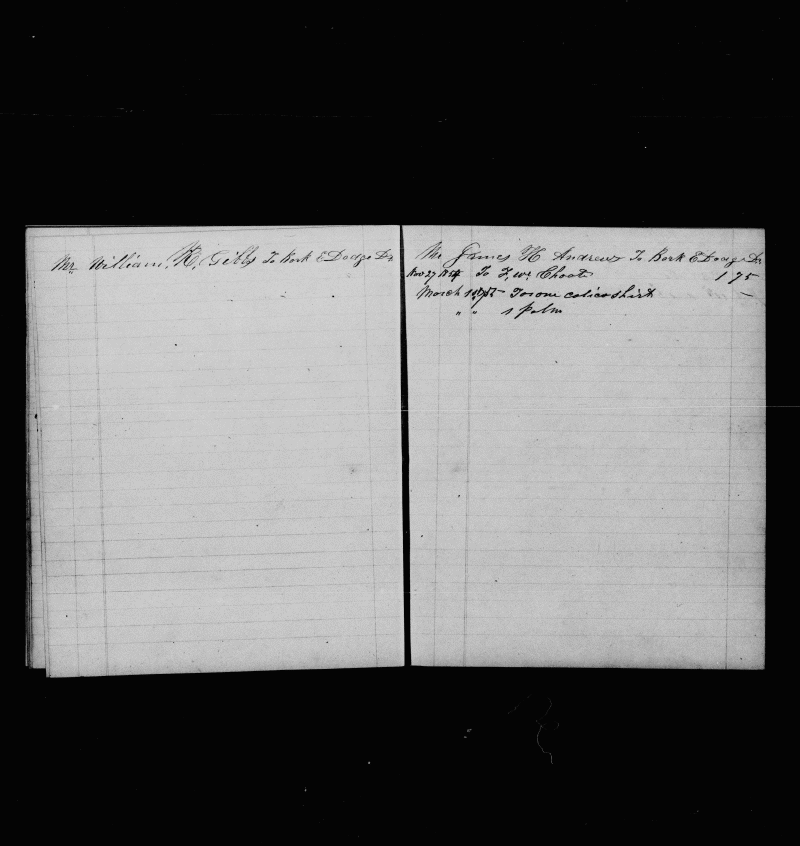 Mr. William. H. Gibbs To Bark E Dodge Dr
Mr James H Andrews To Bark E Dodge Dr
Nov 27 1854 To 7 wr Choat 1 75
March To one calico shirt —
" " 1 palm